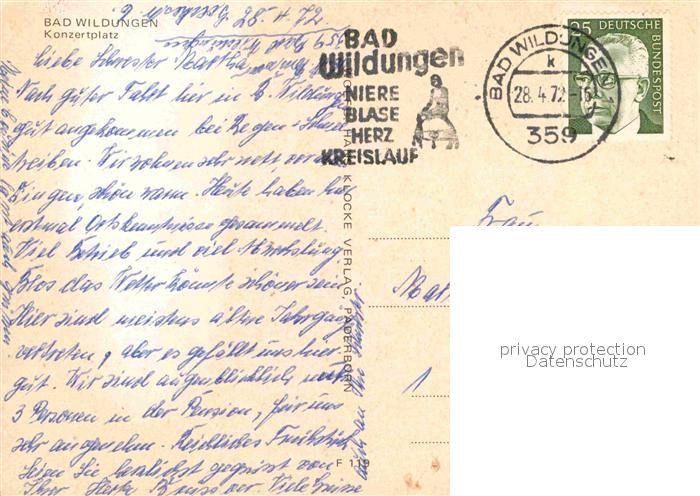 BAD WILDUNGEN
Konzertplatz
25. 4. 72.
Liebe Schwester Martha
Nach guter Fahrt hier in B. Wildungen
gut angekommen bei Regen + Schnee
treiben. Wir wohnen sehr nett,
schön warm. Heute haben wir
erstmal Ortskenntnisse gesammelt.
Viel Betrieb und viel Abwechslung.
Blos das Wetter könnte schöner sein
Hier sind meistens ältere Jahrgänge
vertreten, aber es gefällt uns hier
gut. Wir sind augenblicklich
3 Personen in der Pension, für uns
sehr angenehm. Reichliches Frühstück
Seien Sie herzlichst gegrüsst von
Ihrer Viele Grüsse
BAD
Wildungen
NIERE
BLASE
HERZ
KREISLAUF
BAD WILDUNGEN 1
k
28.4.72-16
359
25 DEUTSCHE
BUNDESPOST
KLOCKE VERLAG, PADERBORN
F 119
Frau
1
privacy protection
Datenschutz